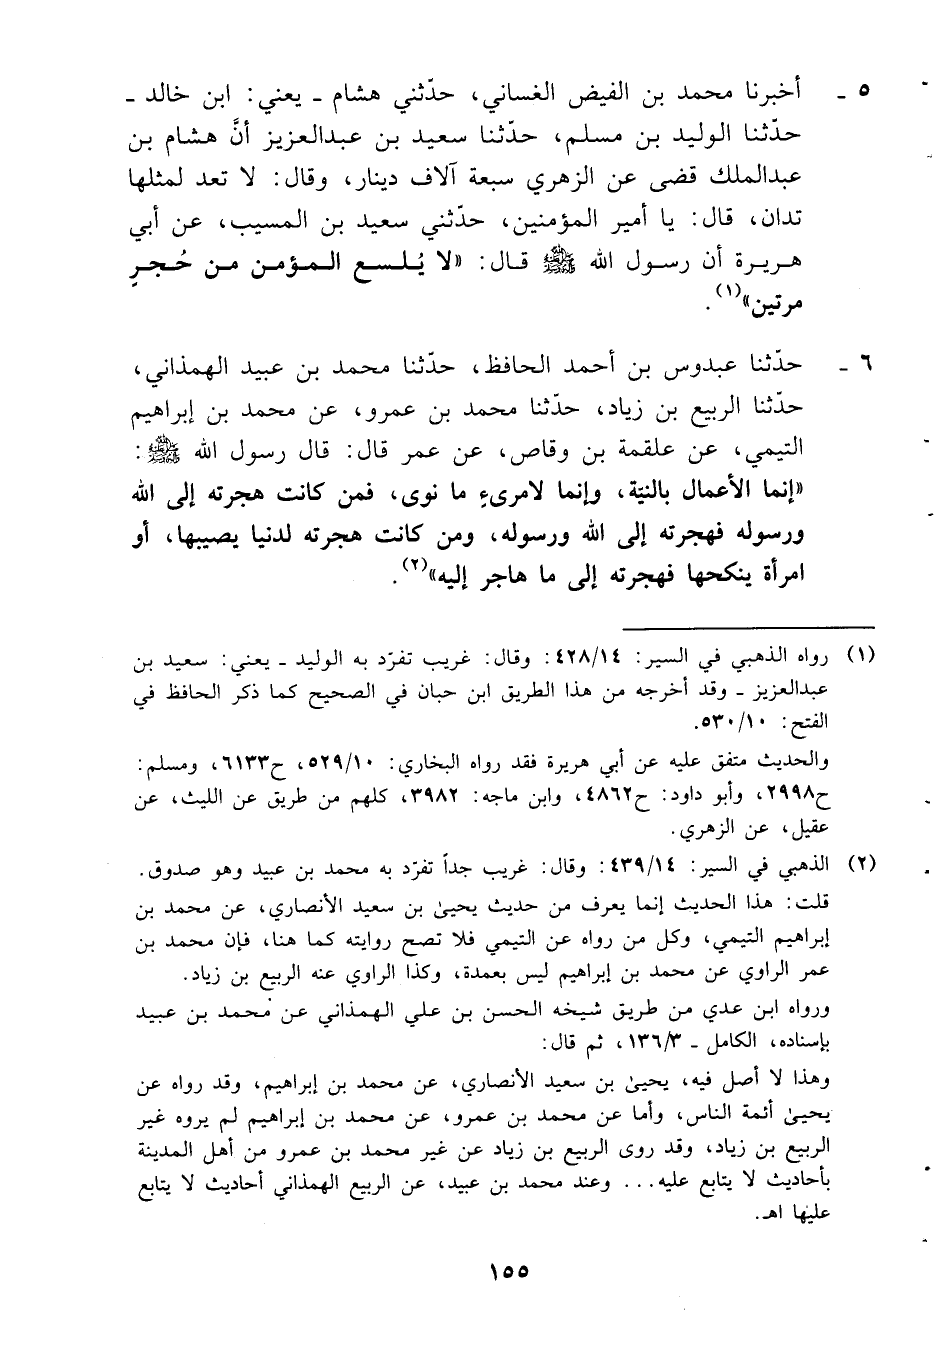 ٥ ـ أخبرنا محمد بن الفيض الغساني، حدّثني هشام ـ يعني: ابن خالد ـ
حدّثنا الوليد بن مسلم، حدّثنا سعيد بن عبدالعزيز أنَّ هشام بن
عبدالملك قضى عن الزهري سبعة آلاف دينار، وقال: لا تعد لمثلها
تدان، قال: يا أمير المؤمنين، حدّثني سعيد بن المسيب، عن أبي
هريرة أن رسول الله ﷺ قال: «لا يُلسع المؤمن من حُجرٍ
مرتين»(١).
٦ ـ حدّثنا عبدوس بن أحمد الحافظ، حدّثنا محمد بن عبيد الهمذاني،
حدّثنا الربيع بن زياد، حدّثنا محمد بن عمرو، عن محمد بن إبراهيم
التيمي، عن علقمة بن وقاص، عن عمر قال: قال رسول الله ﷺ:
«إنما الأعمال بالنيّة، وإنما لامرىءٍ ما نوى، فمن كانت هجرته إلى الله
ورسوله فهجرته إلى الله ورسوله، ومن كانت هجرته لدنيا يصيبها، أو
امرأة ينكحها فهجرته إلى ما هاجر إليه»(٢).
(١) رواه الذهبي في السير: ٤٢٨/١٤: وقال: غريب تفرّد به الوليد ـ يعني: سعيد بن
عبدالعزيز ـ وقد أخرجه من هذا الطريق ابن حبان في الصحيح كما ذكر الحافظ في
الفتح: ٥٣٠/١٠.
والحديث متفق عليه عن أبي هريرة فقد رواه البخاري: ٥٢٩/١٠، ح٦١٣٣، ومسلم:
ح٢٩٩٨، وأبو داود: ح٤٨٦٢، وابن ماجه: ٣٩٨٢، كلهم من طريق عن الليث، عن
عقيل، عن الزهري.
(٢) الذهبي في السير: ٤٣٩/١٤: وقال: غريب جداً تفرّد به محمد بن عبيد وهو صدوق.
قلت: هذا الحديث إنما يعرف من حديث يحيىٰ بن سعيد الأنصاري، عن محمد بن
إبراهيم التيمي، وكل من رواه عن التيمي فلا تصح روايته كما هنا، فإن محمد بن
عمر الراوي عن محمد بن إبراهيم ليس بعمدة، وكذا الراوي عنه الربيع بن زياد.
ورواه ابن عدي من طريق شيخه الحسن بن علي الهمذاني عن محمد بن عبيد
بإسناده، الكامل ـ ١٣٦/٣، ثم قال:
وهذا لا أصل فيه، يحيىٰ بن سعيد الأنصاري، عن محمد بن إبراهيم، وقد رواه عن
يحيىٰ أئمة الناس، وأما عن محمد بن عمرو، عن محمد بن إبراهيم لم يروه غير
الربيع بن زياد، وقد روى الربيع بن زياد عن غير محمد بن عمرو من أهل المدينة
بأحاديث لا يتابع عليه... وعند محمد بن عبيد، عن الربيع الهمذاني أحاديث لا يتابع
عليها اهـ.
١٥٥